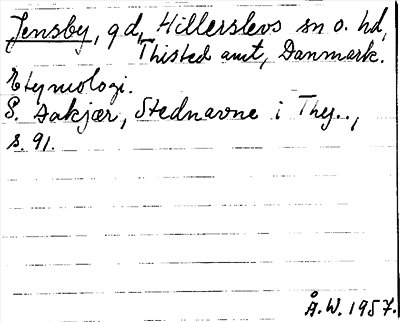 Jensby, gd, Hillerslevs sn o. hd,
Thisted amt, Danmark.
Etymologi.
P. Aakjær, Stednavne i Thy..,
s. 91.
Å.W. 1957.